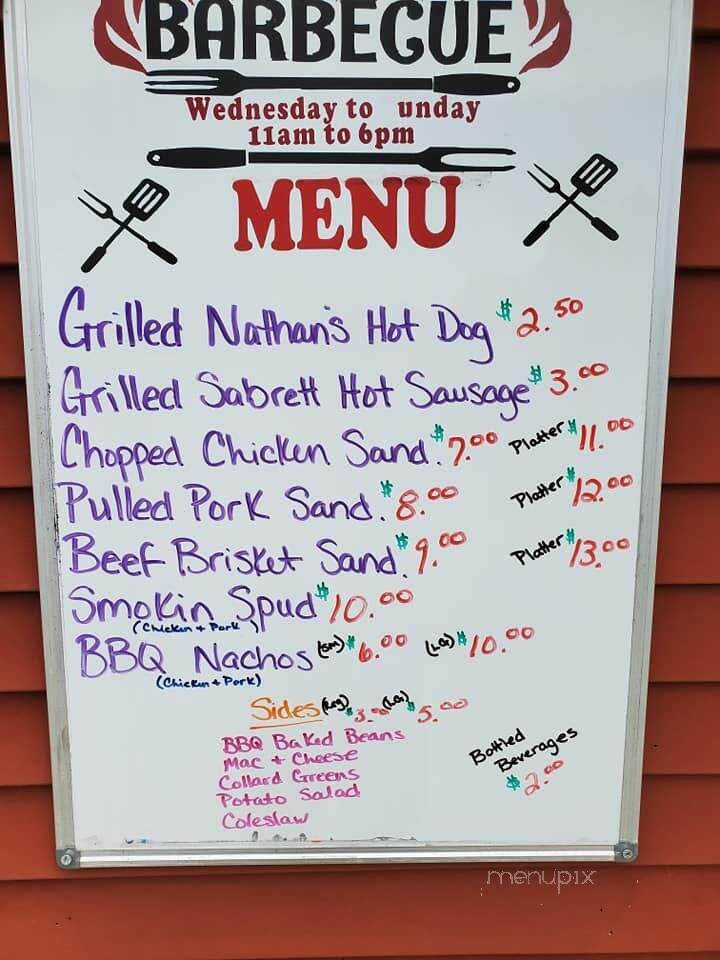 BARBECUE
Wednesday to unday
11am to 6pm
MENU
Grilled Nathan's Hot Dog $2.50
Grilled Sabrett Hot Sausage $3.00
Chopped Chicken Sand. $7.00 Platter $11.00
Pulled Pork Sand. $8.00 Platter $12.00
Beef Brisket Sand. $9.00 Platter $13.00
Smokin Spud $10.00
(Chicken + Pork)
BBQ Nachos (sm) $6.00 (LG) $10.00
(Chicken + Pork)
Sides (Reg) $3.00 (LG) $5.00
BBQ Baked Beans
Mac + Cheese
Collard Greens
Potato Salad
Coleslaw
Bottled
Beverages
$2.00
menupix